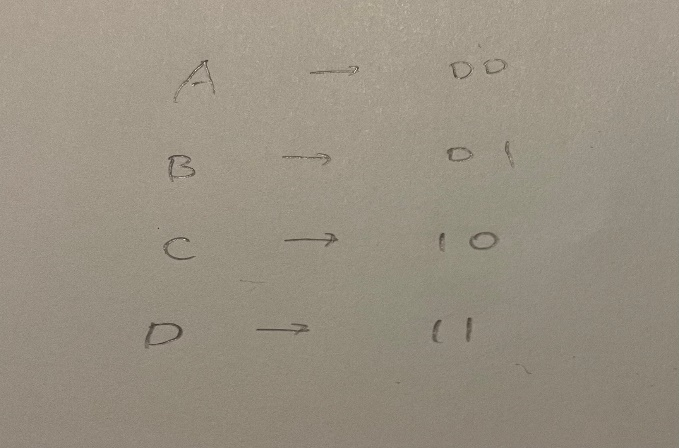 A → 00
B → 01
C → 10
D → 11